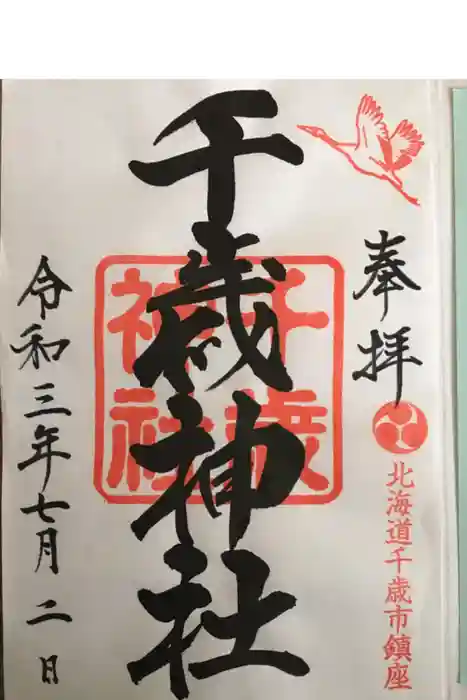 奉拝
北海道千歳市鎮座
千歳神社
千歳
神社
令和三年七月二日